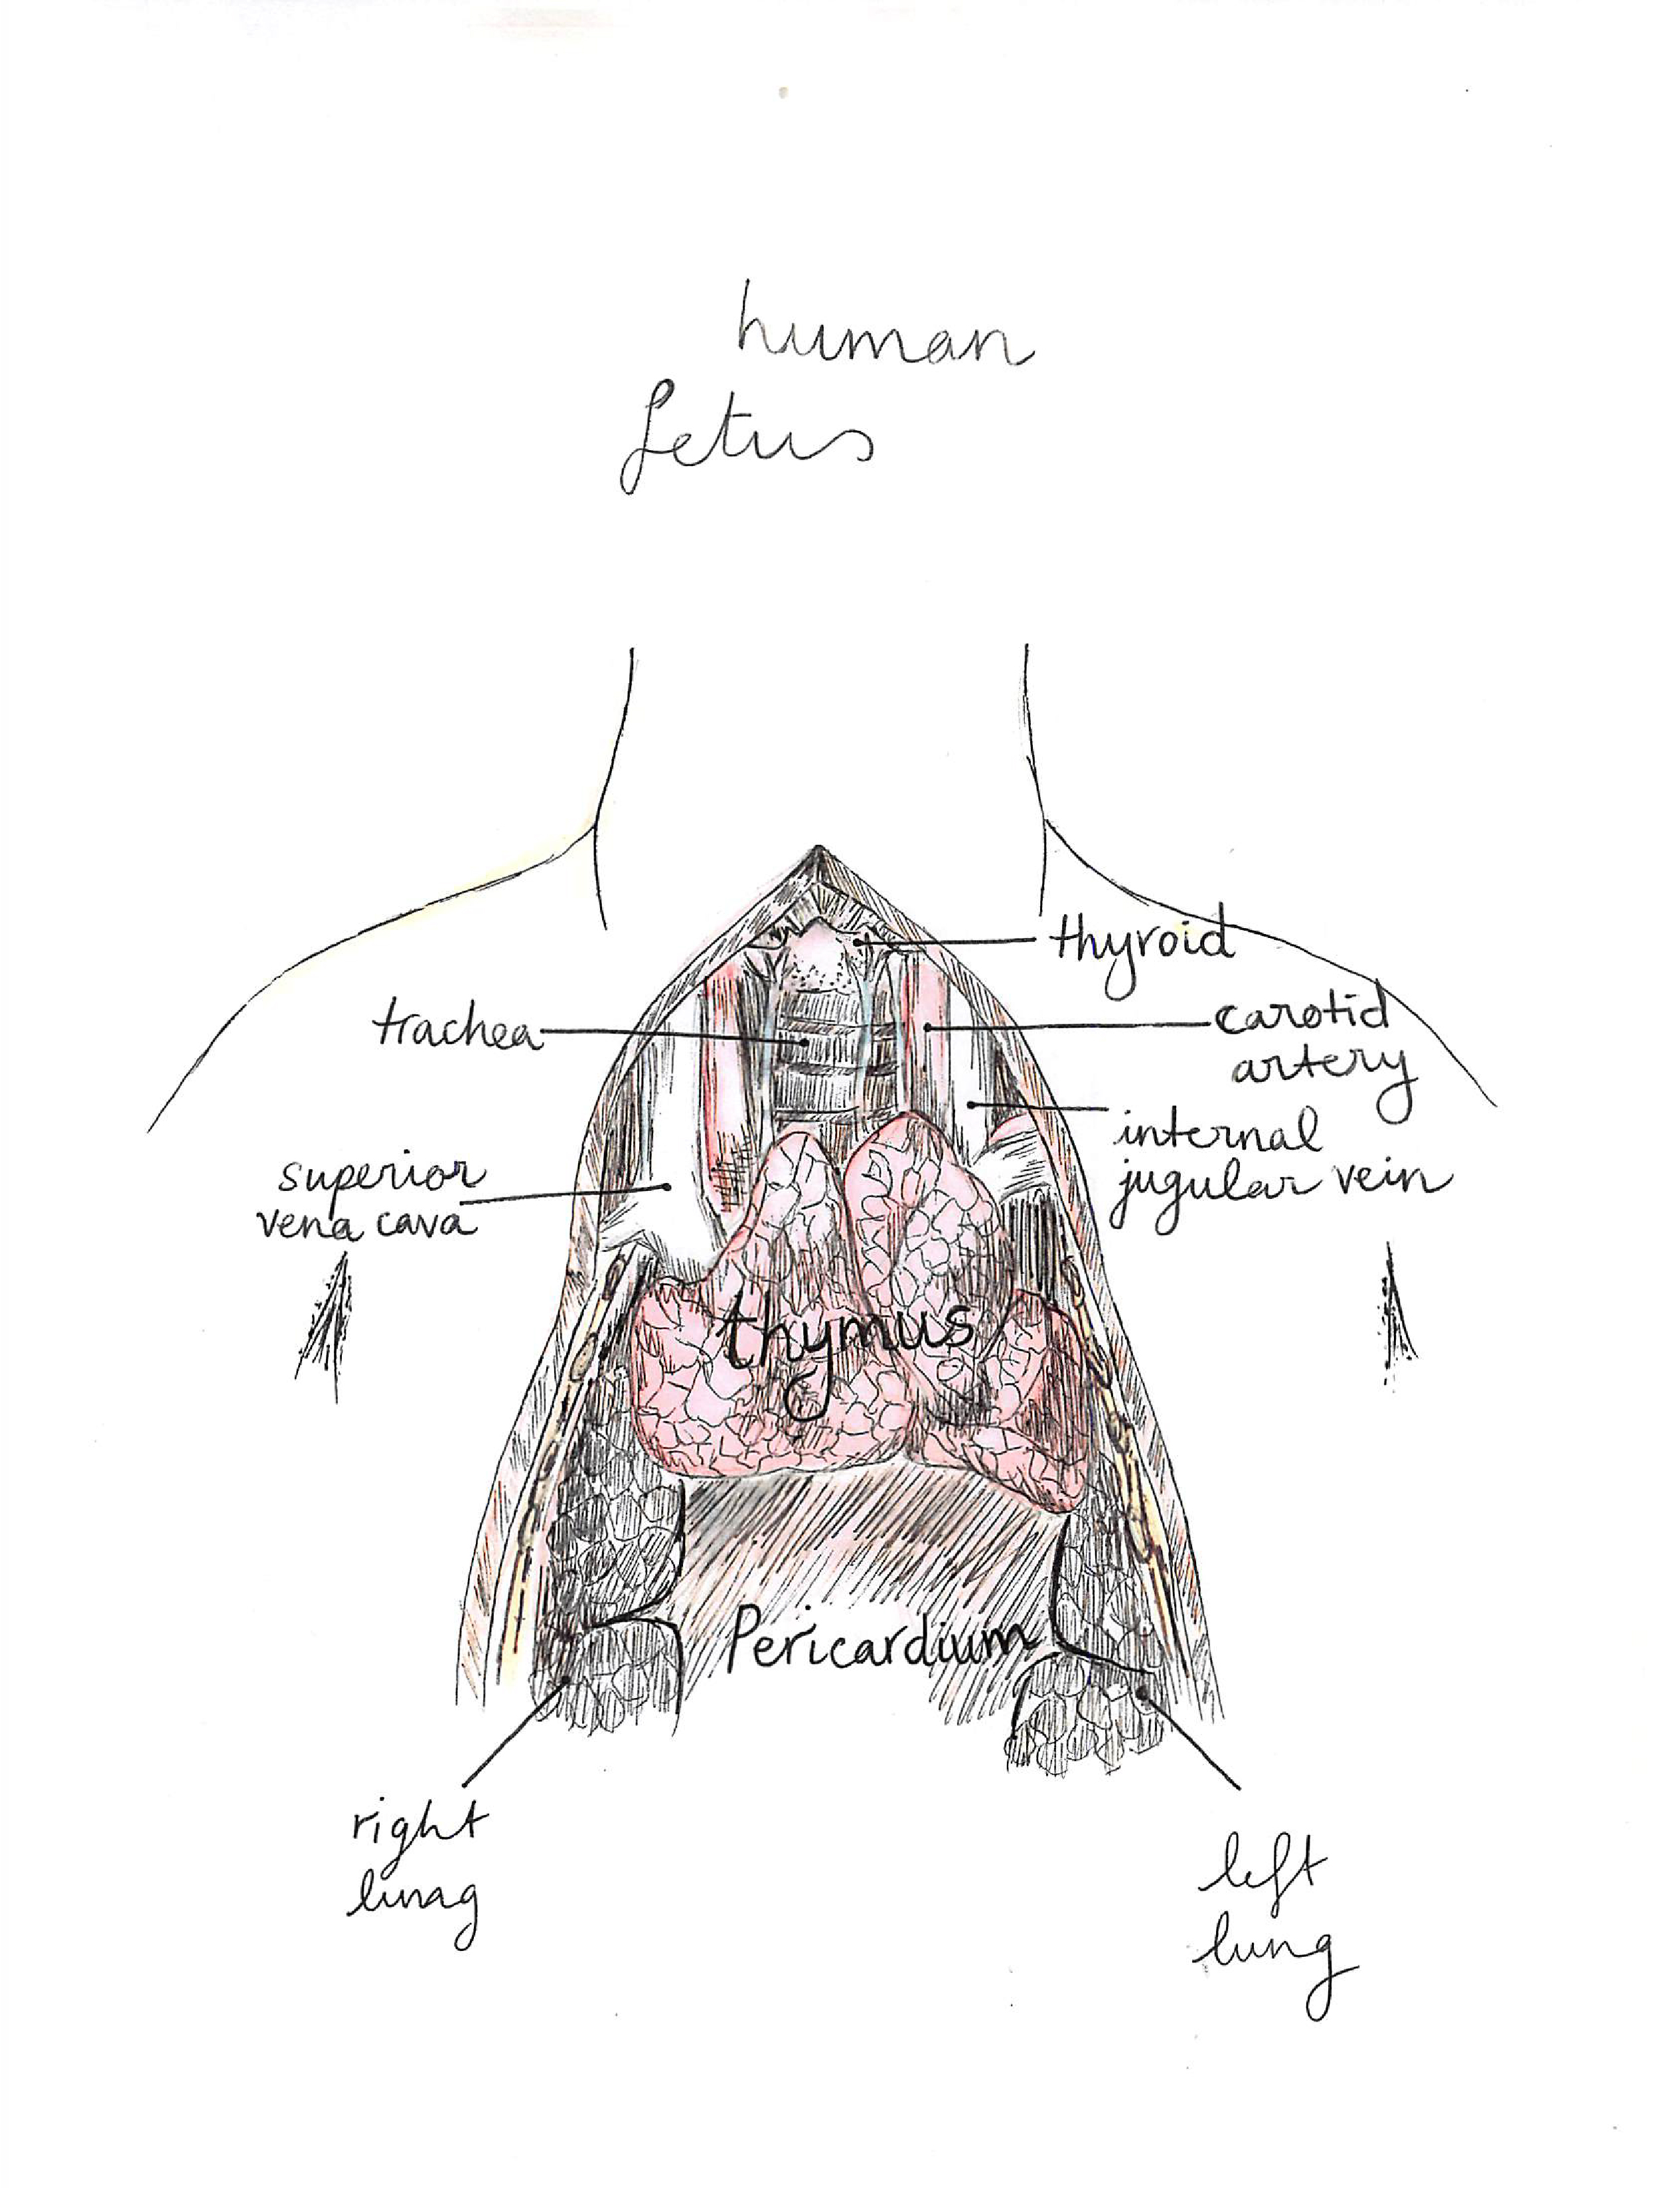 human
fetus
thyroid
trachea
carotid
artery
internal
jugular vein
superior
vena cava
thymus
Pericardium
right
lung
left
lung